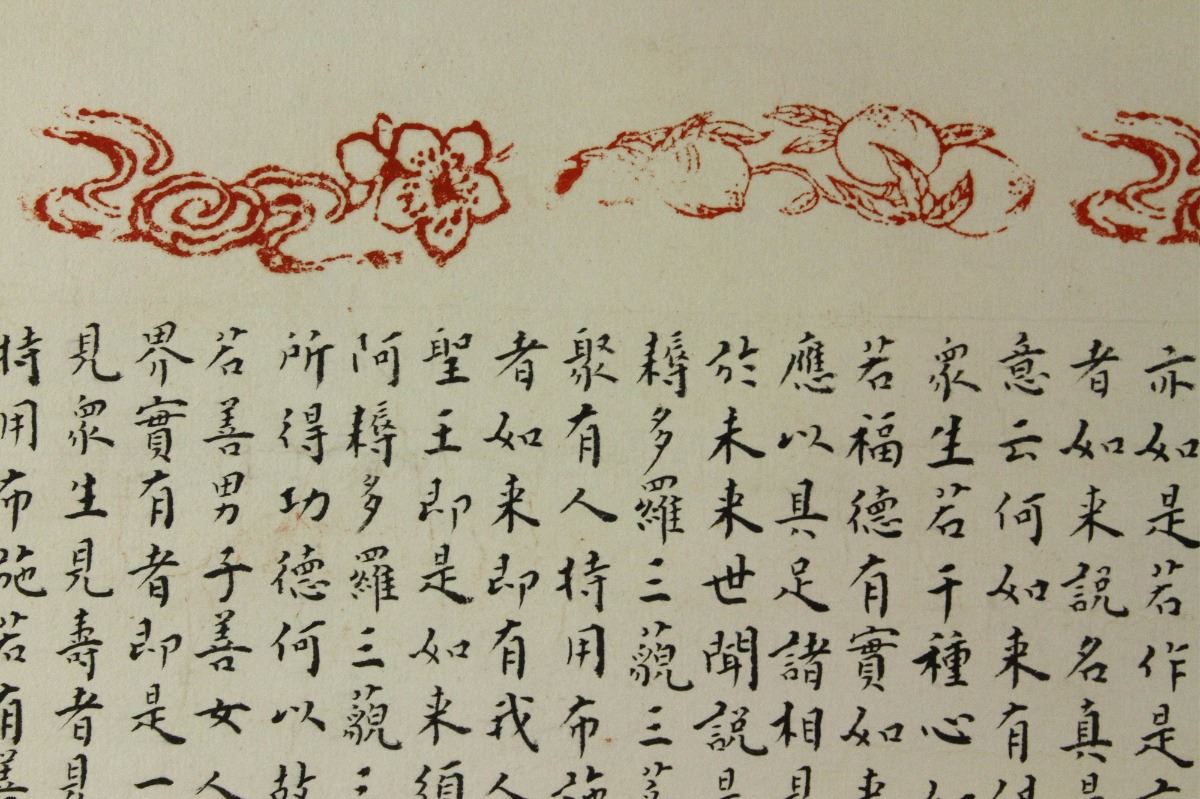 亦如是若作是
者如来說名真是
意云何如来有
衆生若干種心如
若福德有實如来
應以具足諸相具
於未来世聞說是
耨多羅三藐三菩
聚有人持用布施
者如来即有我人
聖王即是如来須
阿耨多羅三藐三
所得功德何以故
若善男子善女人
界實有者即是一
見衆生見壽者見
持用布施若有善